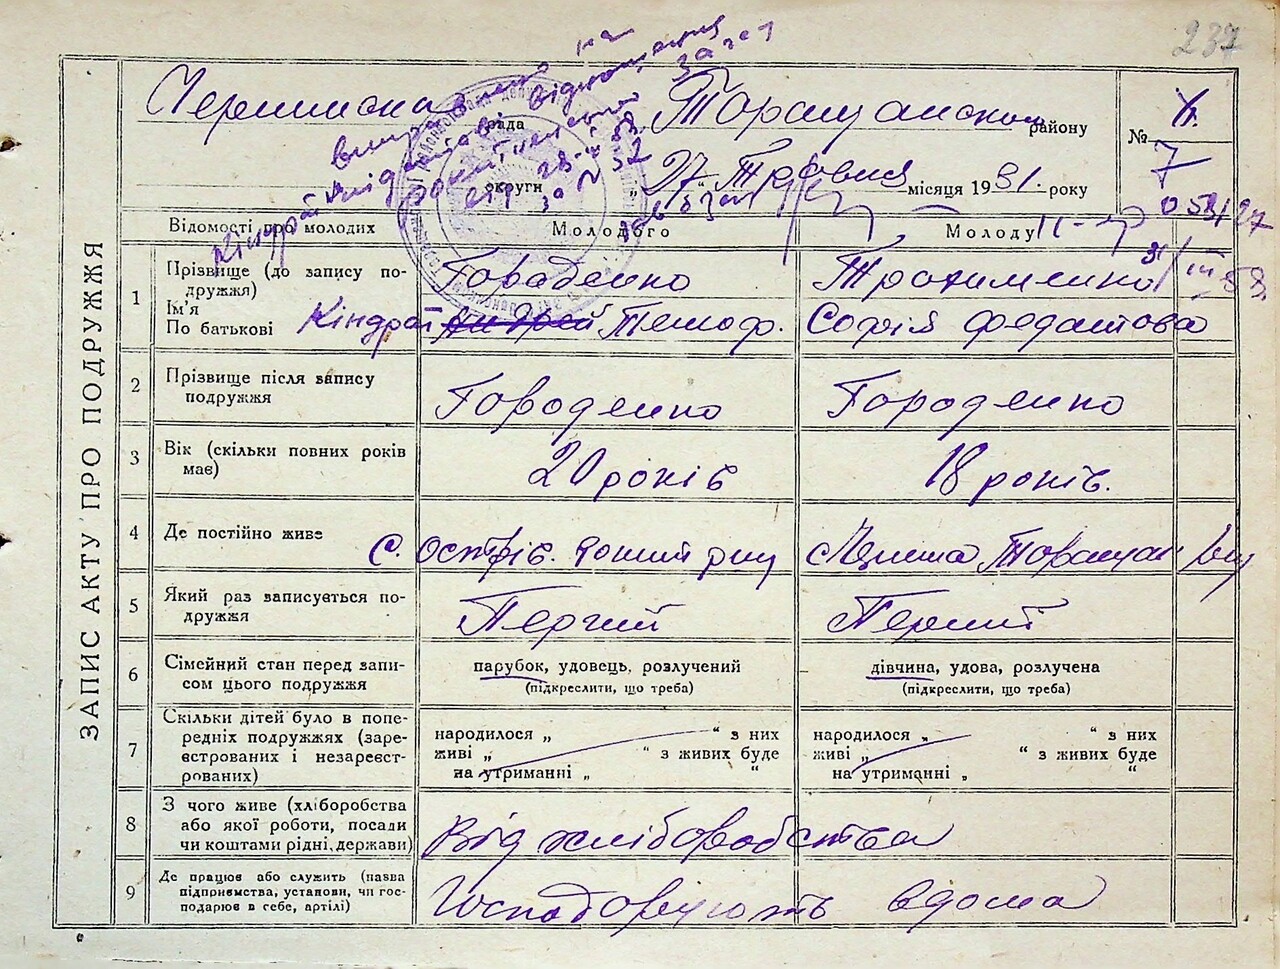 232
Черкиська рада Таращанском району № 7
округи „27“ Травня місяця 1931. року
Відомості про молодих Молодого Молоду
ЗАПИС АКТУ ПРО ПОДРУЖЖЯ
1 Прізвище (до запису подружжя) Городенко Трохименко
Ім'я По батькові Кіндрат Андрей Тимоф. Софія Федотова
2 Прізвище після запису подружжя Городенко Городенко
3 Вік (скільки повних років має) 20 років 18 років.
4 Де постійно живе с. Острів. Рокит р-ну с. Лучина Таращан р-ну
5 Який раз записується подружжя Перший Перший
6 Сімейний стан перед записом цього подружжя парубок, удовець, розлучений (підкреслити, що треба) дівчина, удова, розлучена (підкреслити, що треба)
7 Скільки дітей було в попередніх подружжях (зареєстрованих і незареєстрованих) народилося „ “ з них живі „ “ з живих буде на утриманні „ “ народилося „ “ з них живі „ “ з живих буде на утриманні „ “
8 З чого живе (хліборобства або якої роботи, посади чи коштами рідні, держави) Від хліборобства
9 Де працює або служить (назва підприємства, установи, чи господарює в себе, артілі) Господарують вдома